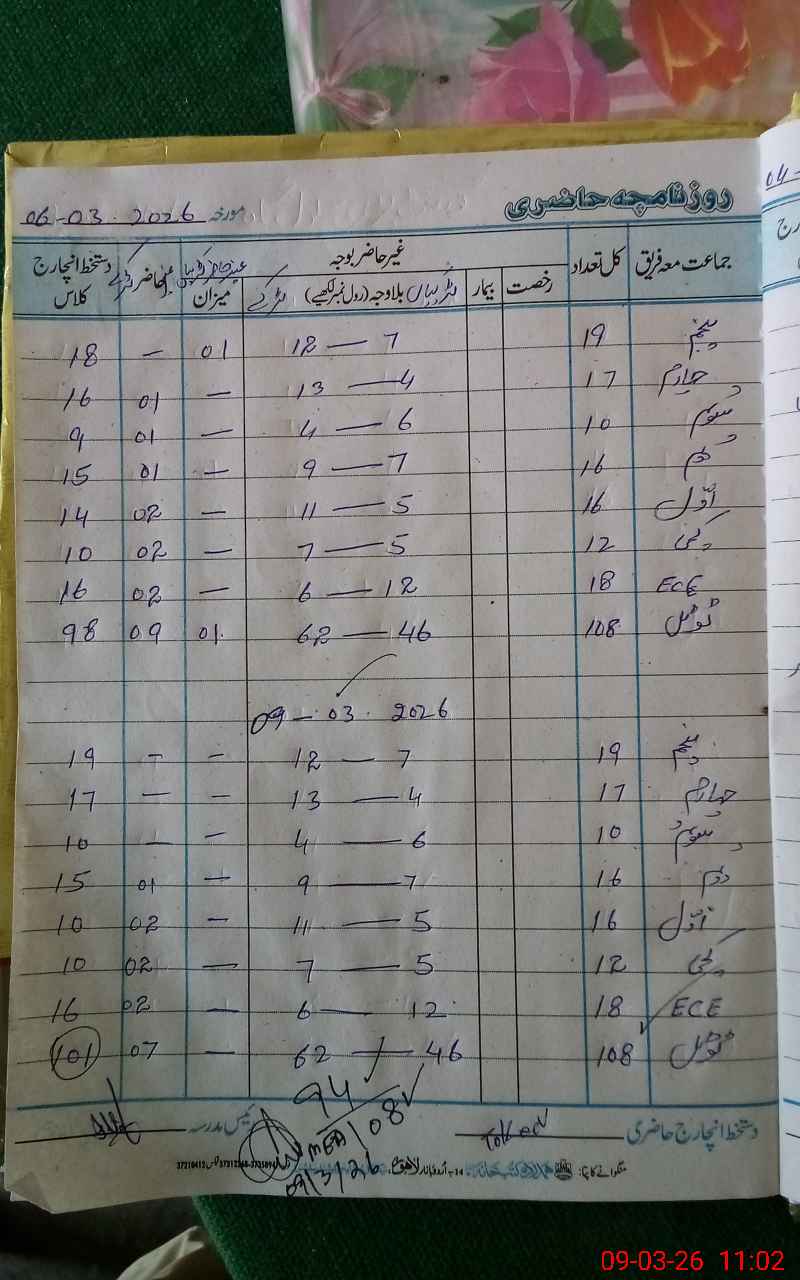 روزنامچہ حاضری
مورخہ 06-03-2026
04-
جماعت معہ فریق کل تعداد غیر حاضر بوجہ غیر حاضر لڑکیاں حاضر لڑکے دستخط انچارج
رخصت بیمار لڑکیاں بلاوجہ (رول نمبر لکھیے) لڑکے میزان کلاس
پنجم 19 7 — 12 01 — 18
چہارم 17 4 — 13 — 01 16
سوئم 10 6 — 4 — 01 9
دوم 16 7 — 9 — 01 15
اوّل 16 5 — 11 — 02 14
کچی 12 5 — 7 — 02 10
ECE 18 12 — 6 — 02 16
ٹوٹل 108 46 — 62 01 09 98
09-03-2026
پنجم 19 7 — 12 — — 19
چہارم 17 4 — 13 — — 17
سوئم 10 6 — 4 — — 10
دوم 16 7 — 9 — 01 15
اوّل 16 5 — 11 — 02 10
کچی 12 5 — 7 — 02 10
ECE 18 12 — 6 — 02 16
ٹوٹل 108 46 — 62 — 07 101
94/108
دستخط انچارج حاضری مدرسہ
MEA
09/3/26
منگوانے کا پتہ: اُردو بازار لاہور
09-03-26 11:02